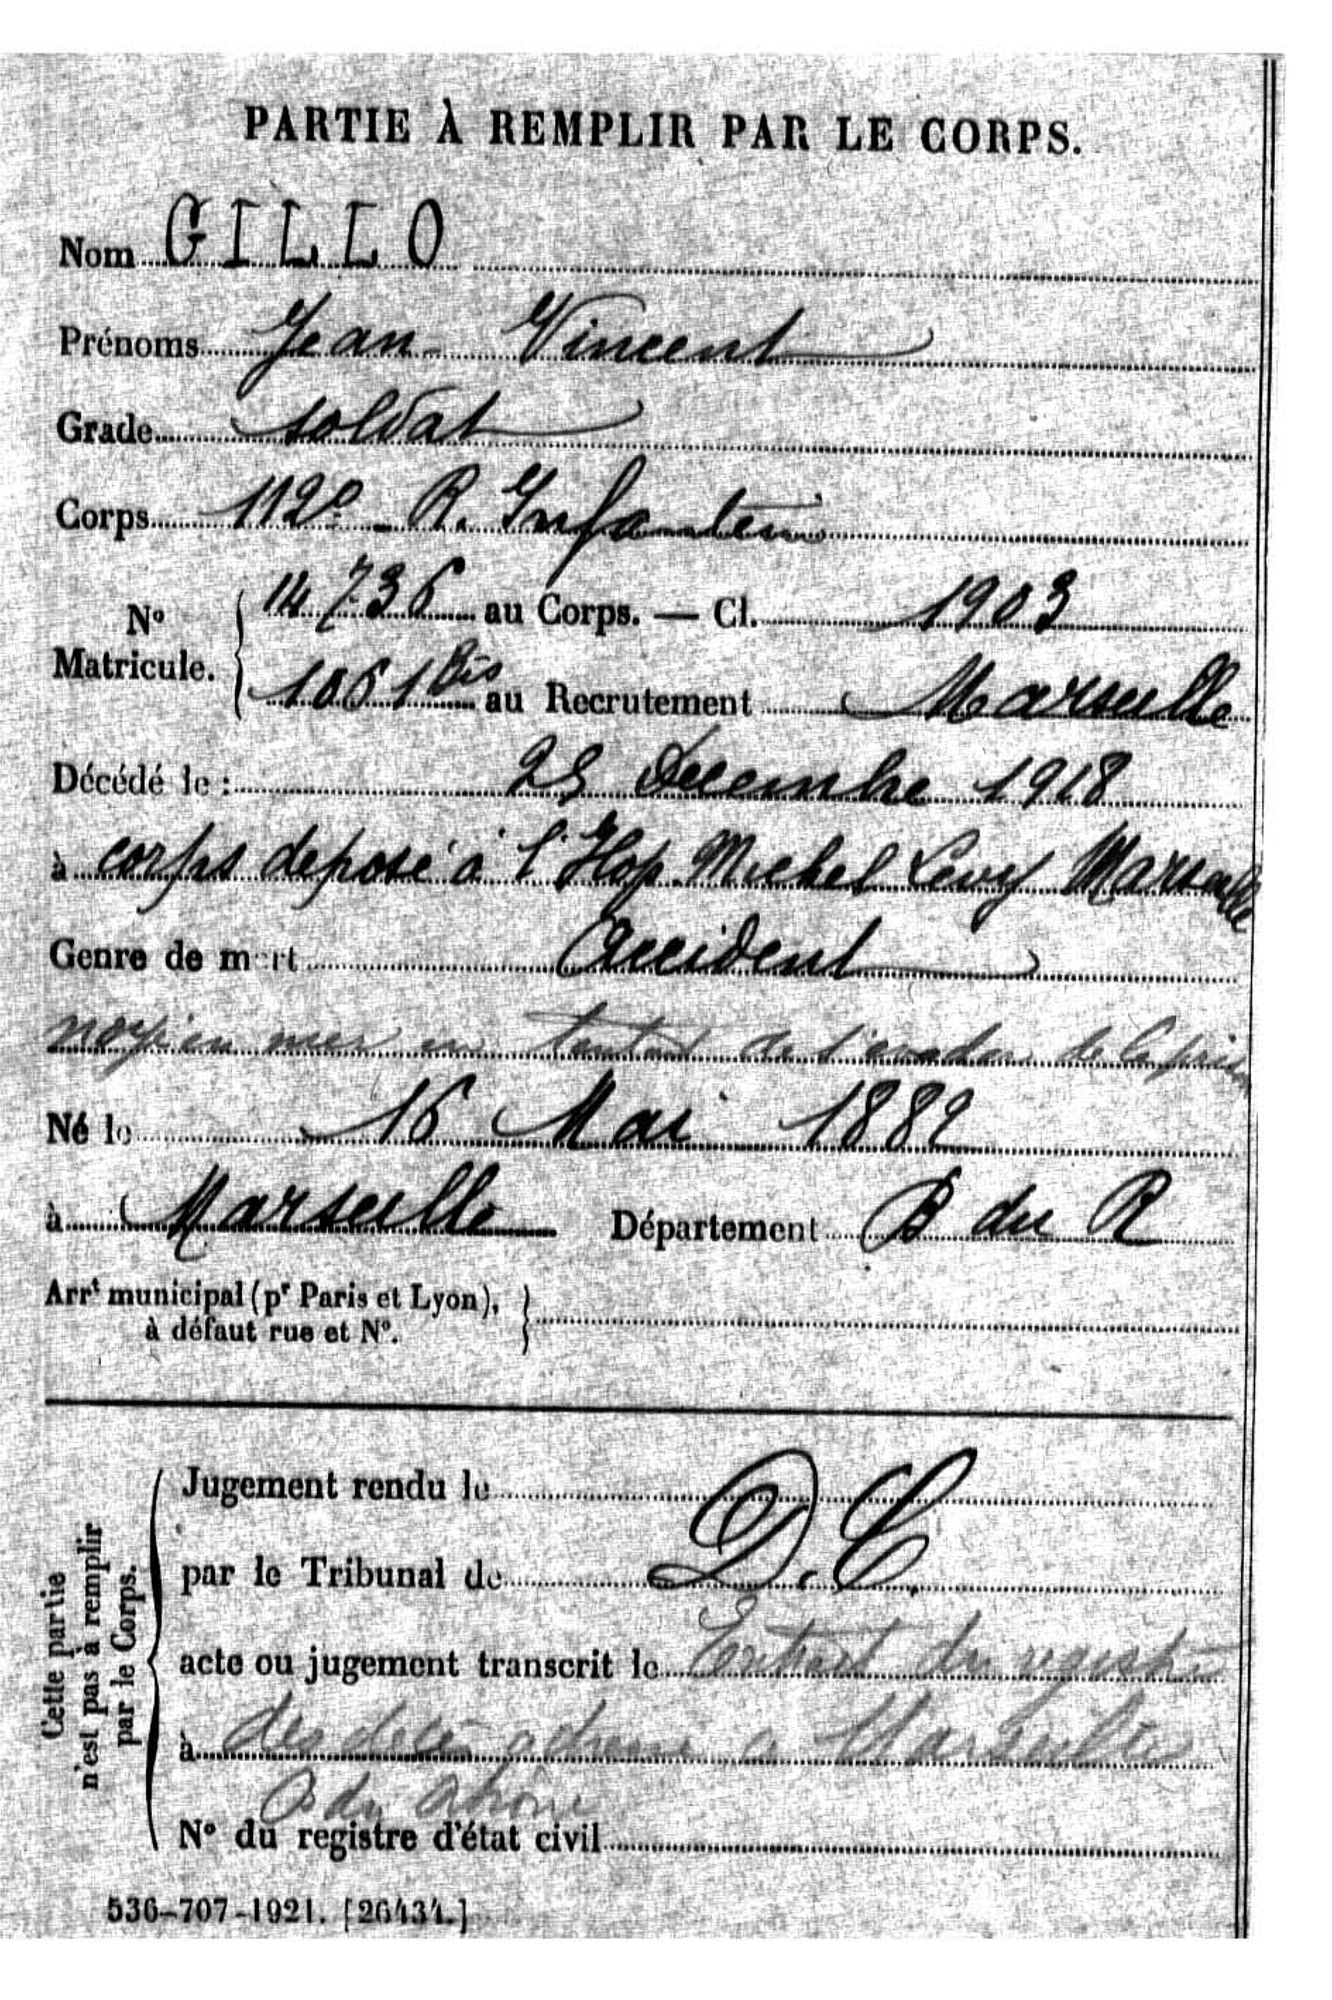 PARTIE À REMPLIR PAR LE CORPS.
Nom GILLO
Prénoms Jean Vincent
Grade soldat
Corps 112e R. Infanterie
No Matricule. 14736 au Corps. — Cl. 1903
1061 Bis au Recrutement Marseille
Décédé le : Decembre 1918
à corps deposé à l'Hop. Michel Levy Marseille
Genre de mort Accident
noyé en mer en tentant de s'evader de la prison
Né le 16 Mai 1882
à Marseille Département B du R
Arrt municipal (pr Paris et Lyon),
à défaut rue et No.
Cette partie
n'est pas à remplir
par le Corps.
Jugement rendu le
par le Tribunal de D.C.
acte ou jugement transcrit le Extrait du registre
à des décès adressé a Marseille
B du Rhône
No du registre d'état civil
536-707-1921. [26434.]